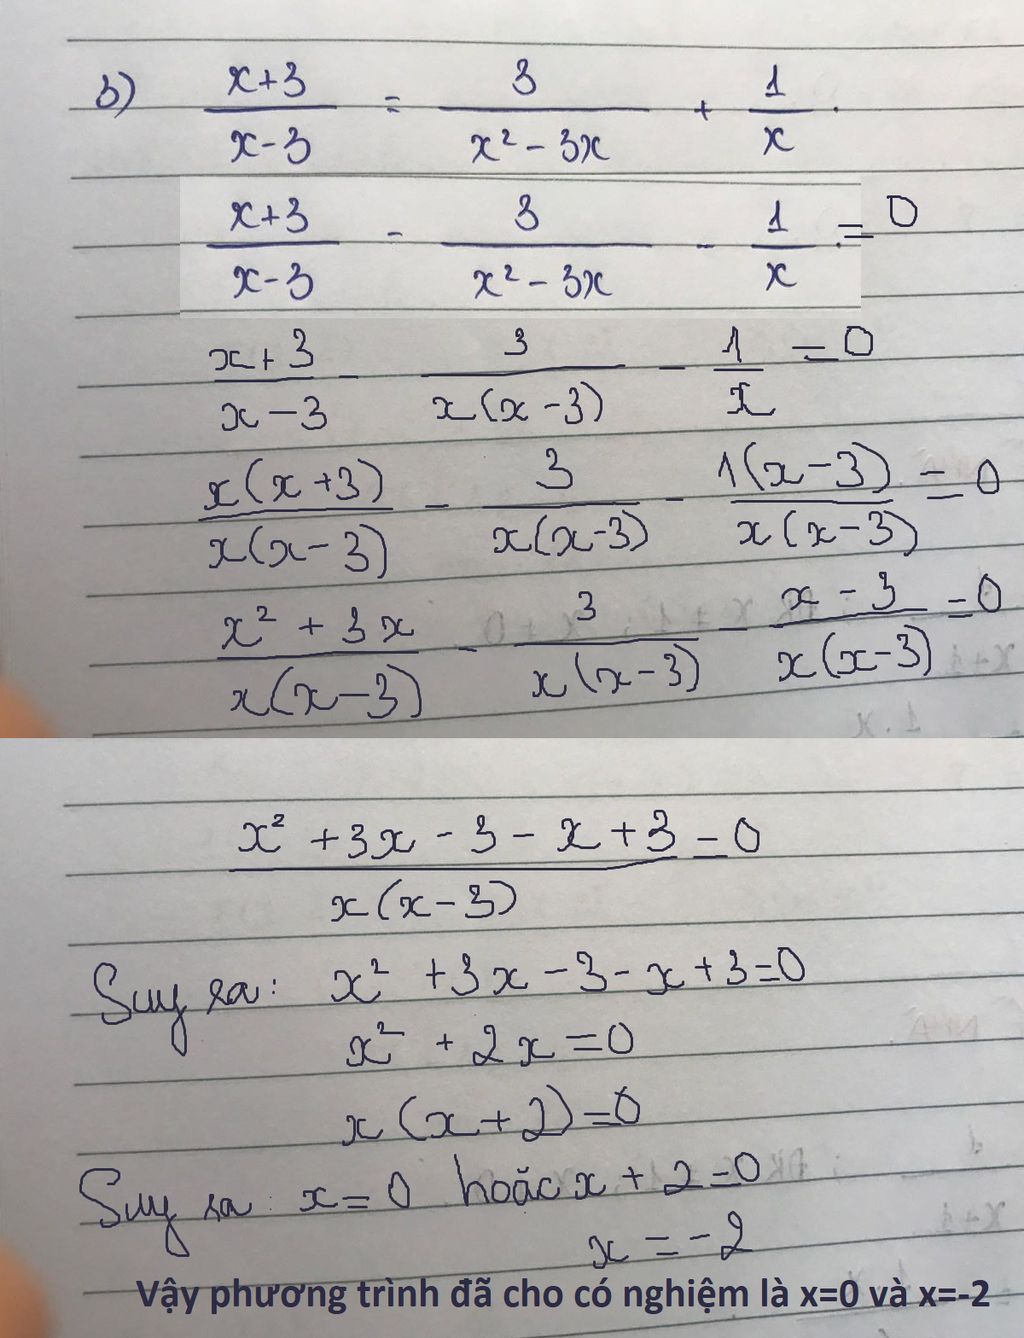 b) (x+3)/(x-3) = 3/(x² - 3x) + 1/x.
(x+3)/(x-3) - 3/(x² - 3x) - 1/x = 0
(x+3)/(x-3) - 3/(x(x-3)) - 1/x = 0
x(x+3)/(x(x-3)) - 3/(x(x-3)) - 1(x-3)/(x(x-3)) = 0
(x² + 3x)/(x(x-3)) - 3/(x(x-3)) - (x-3)/(x(x-3)) = 0
(x² + 3x - 3 - x + 3)/(x(x-3)) = 0
Suy ra: x² + 3x - 3 - x + 3 = 0
x² + 2x = 0
x(x+2) = 0
Suy ra: x = 0 hoặc x + 2 = 0
x = -2
Vậy phương trình đã cho có nghiệm là x=0 và x=-2